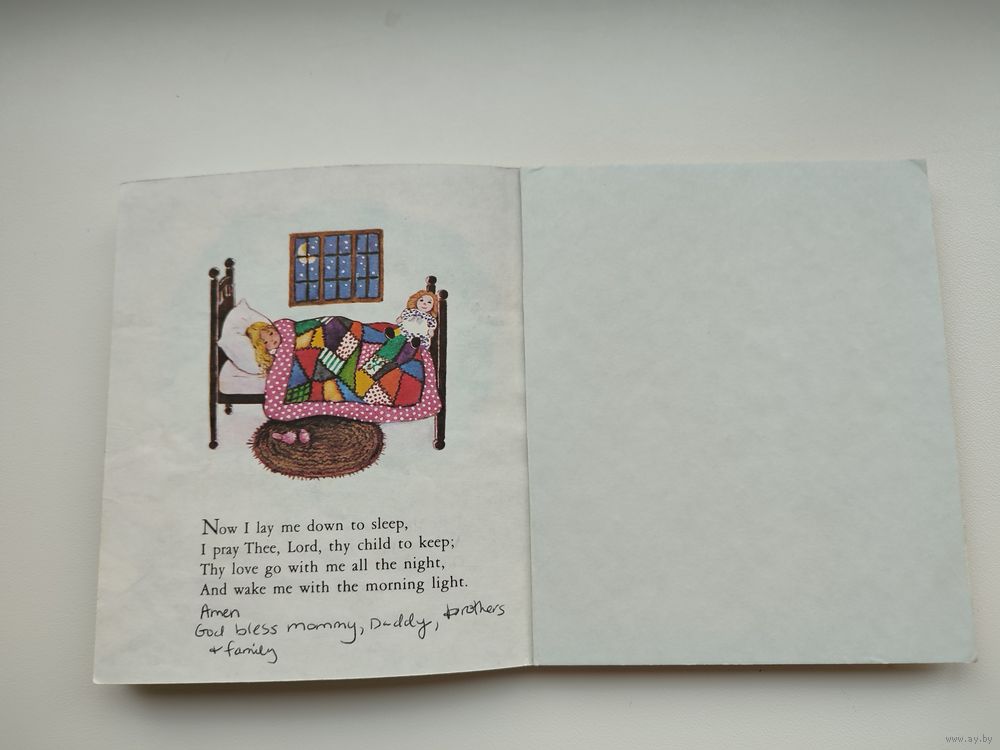 Now I lay me down to sleep,
I pray Thee, Lord, thy child to keep;
Thy love go with me all the night,
And wake me with the morning light.
Amen
God bless mommy, Daddy, brothers
+ family
www.ay.by